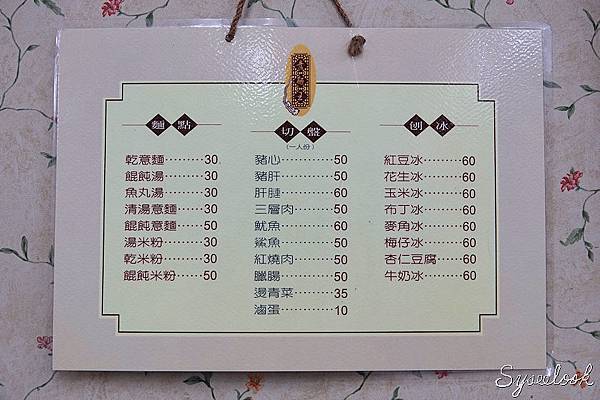 麵點
乾意麵………30
餛飩湯………30
魚丸湯………30
清湯意麵……30
餛飩意麵……50
湯米粉………50
乾米粉………30
餛飩米粉……50
切盤
(一人份)
豬心…………50
豬肝…………50
肝腱…………60
三層肉………50
魷魚…………60
鯊魚…………50
紅燒肉………50
臘腸…………50
燙青菜………35
滷蛋…………10
刨冰
紅豆冰………60
花生冰………60
玉米冰………60
布丁冰………60
麥角冰………60
梅仔冰………60
杏仁豆腐……60
牛奶冰………60
Syseelook